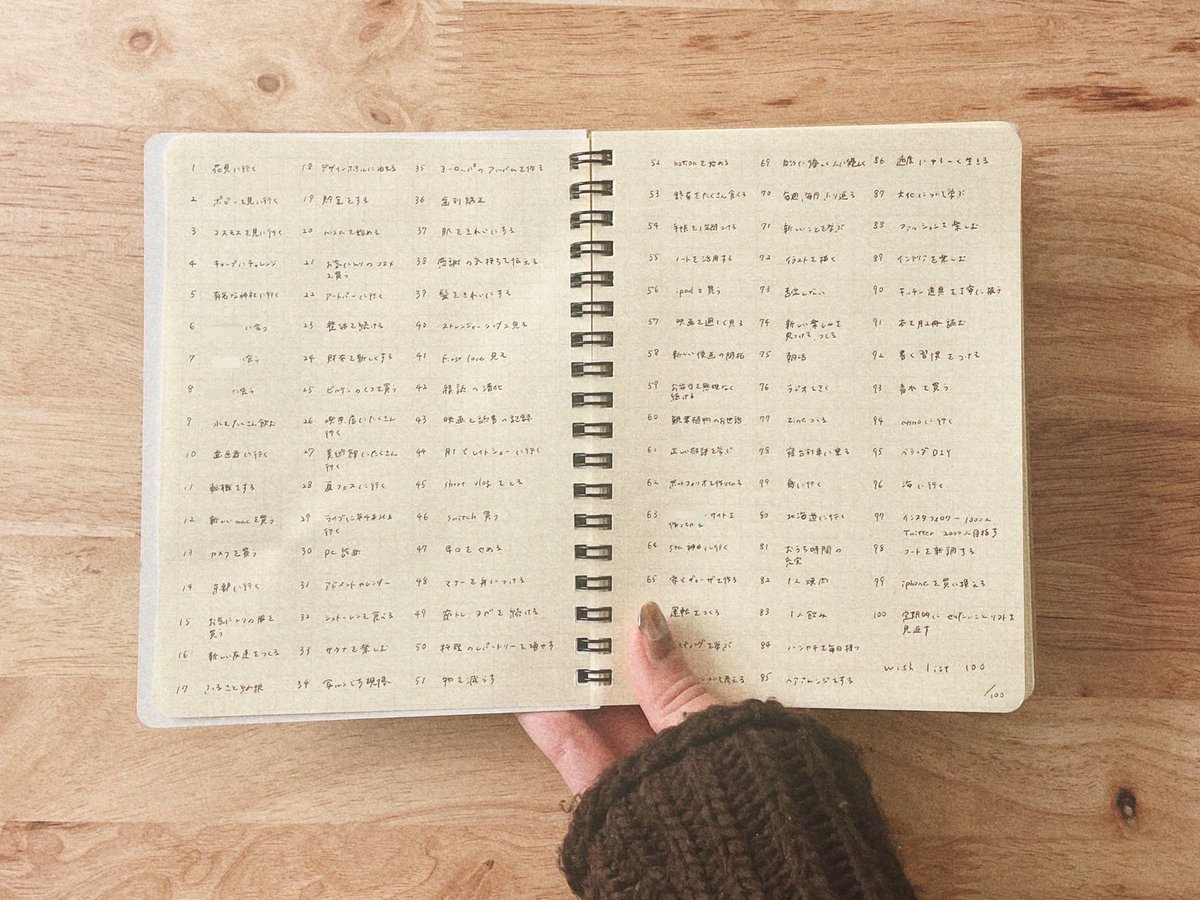 1 花見に行く
2 ポピーを見に行く
3 コスモスを見に行く
4 キャンプにチャレンジ
5 有名な神社に行く
6 に会う
7 会う
8 に会う
9 水をたくさん飲む
10 に行く
11 転職をする
12 新しいmacを買う
13 カメラを買う
14 京都に行く
15 お気に入りの服を
買う
16 新しい友達をつくる
17 ふるさと納税
18 デザインホテルに泊まる
19 貯金をする
20 nisaを始める
21 お気に入りのコスメ
を買う
22 アートバーに行く
23 整体を続ける
24 財布を新しくする
25 ビルケンのくつを買う
26 喫茶店にたくさん
行く
27 美術館にたくさん
行く
28 夏フェスに行く
29 ライブに年4本以上
行く
30 PC 診断
31 アドベントカレンダー
32 シュトーレンを食べる
33 サウナを楽しむ
34 写ルンですで現像
35 ヨーロッパのアルバムを作る
36 歯列矯正
37 肌をきれいにする
38 感謝の気持ちを伝える
39 髪をきれいにする
40 ストレンジャーシングス見る
41 First love 見る
42 雑誌の消化
43 映画と読書の記録
44 月1でレイトショーに行く
45 short vlogをとる
46 switch 買う
47 串口をせめる
48 マナーを身につける
49 筋トレ ヨガを続ける
50 料理のレパートリーを増やす
51 物を減らす
52 notionを始める
53 野菜をたくさん食べる
54 手帳を1年間つける
55 ノートを活用する
56 ipadを買う
57 映画を週1で見る
58 新しい漫画の開拓
59 お弁当を無理なく
続ける
60 観葉植物のお世話
61 正しい敬語を学ぶ
62 ポートフォリオを作りきる
63 サイトを
作りきる
64 に行く
65 家でピザを作る
66 運転をつくる
を学ぶ
考える
69 自分に優しく人に優しく
70 毎週、毎月、ふり返る
71 新しいことを学ぶ
72 イラストを描く
73 否定しない
74 新しい楽しみを
見つける、つくる
75 朝活
76 ラジオをきく
77 zineつくる
78 寝台列車に乗る
79 島に行く
80 北海道に行く
81 おうち時間の
充実
82 1人焼肉
83 1人飲み
84 ハンカチを毎日持つ
85 ヘアアレンジをする
86 適度にゆるーく生きる
87 文化について学ぶ
88 ファッションを楽しむ
89 インテリアを楽しむ
90 キッチン道具を丁寧に扱う
91 本を月2冊読む
92 書く習慣をつける
93 香水を買う
94 に行く
95 ベランダDIY
96 海に行く
97 インスタフォロワー1000人
Twitter 2000人目指す
98 コートを新調する
99 iphoneを買い換える
100 定期的にやりたいことリストを
見返す
wish list 100
/100